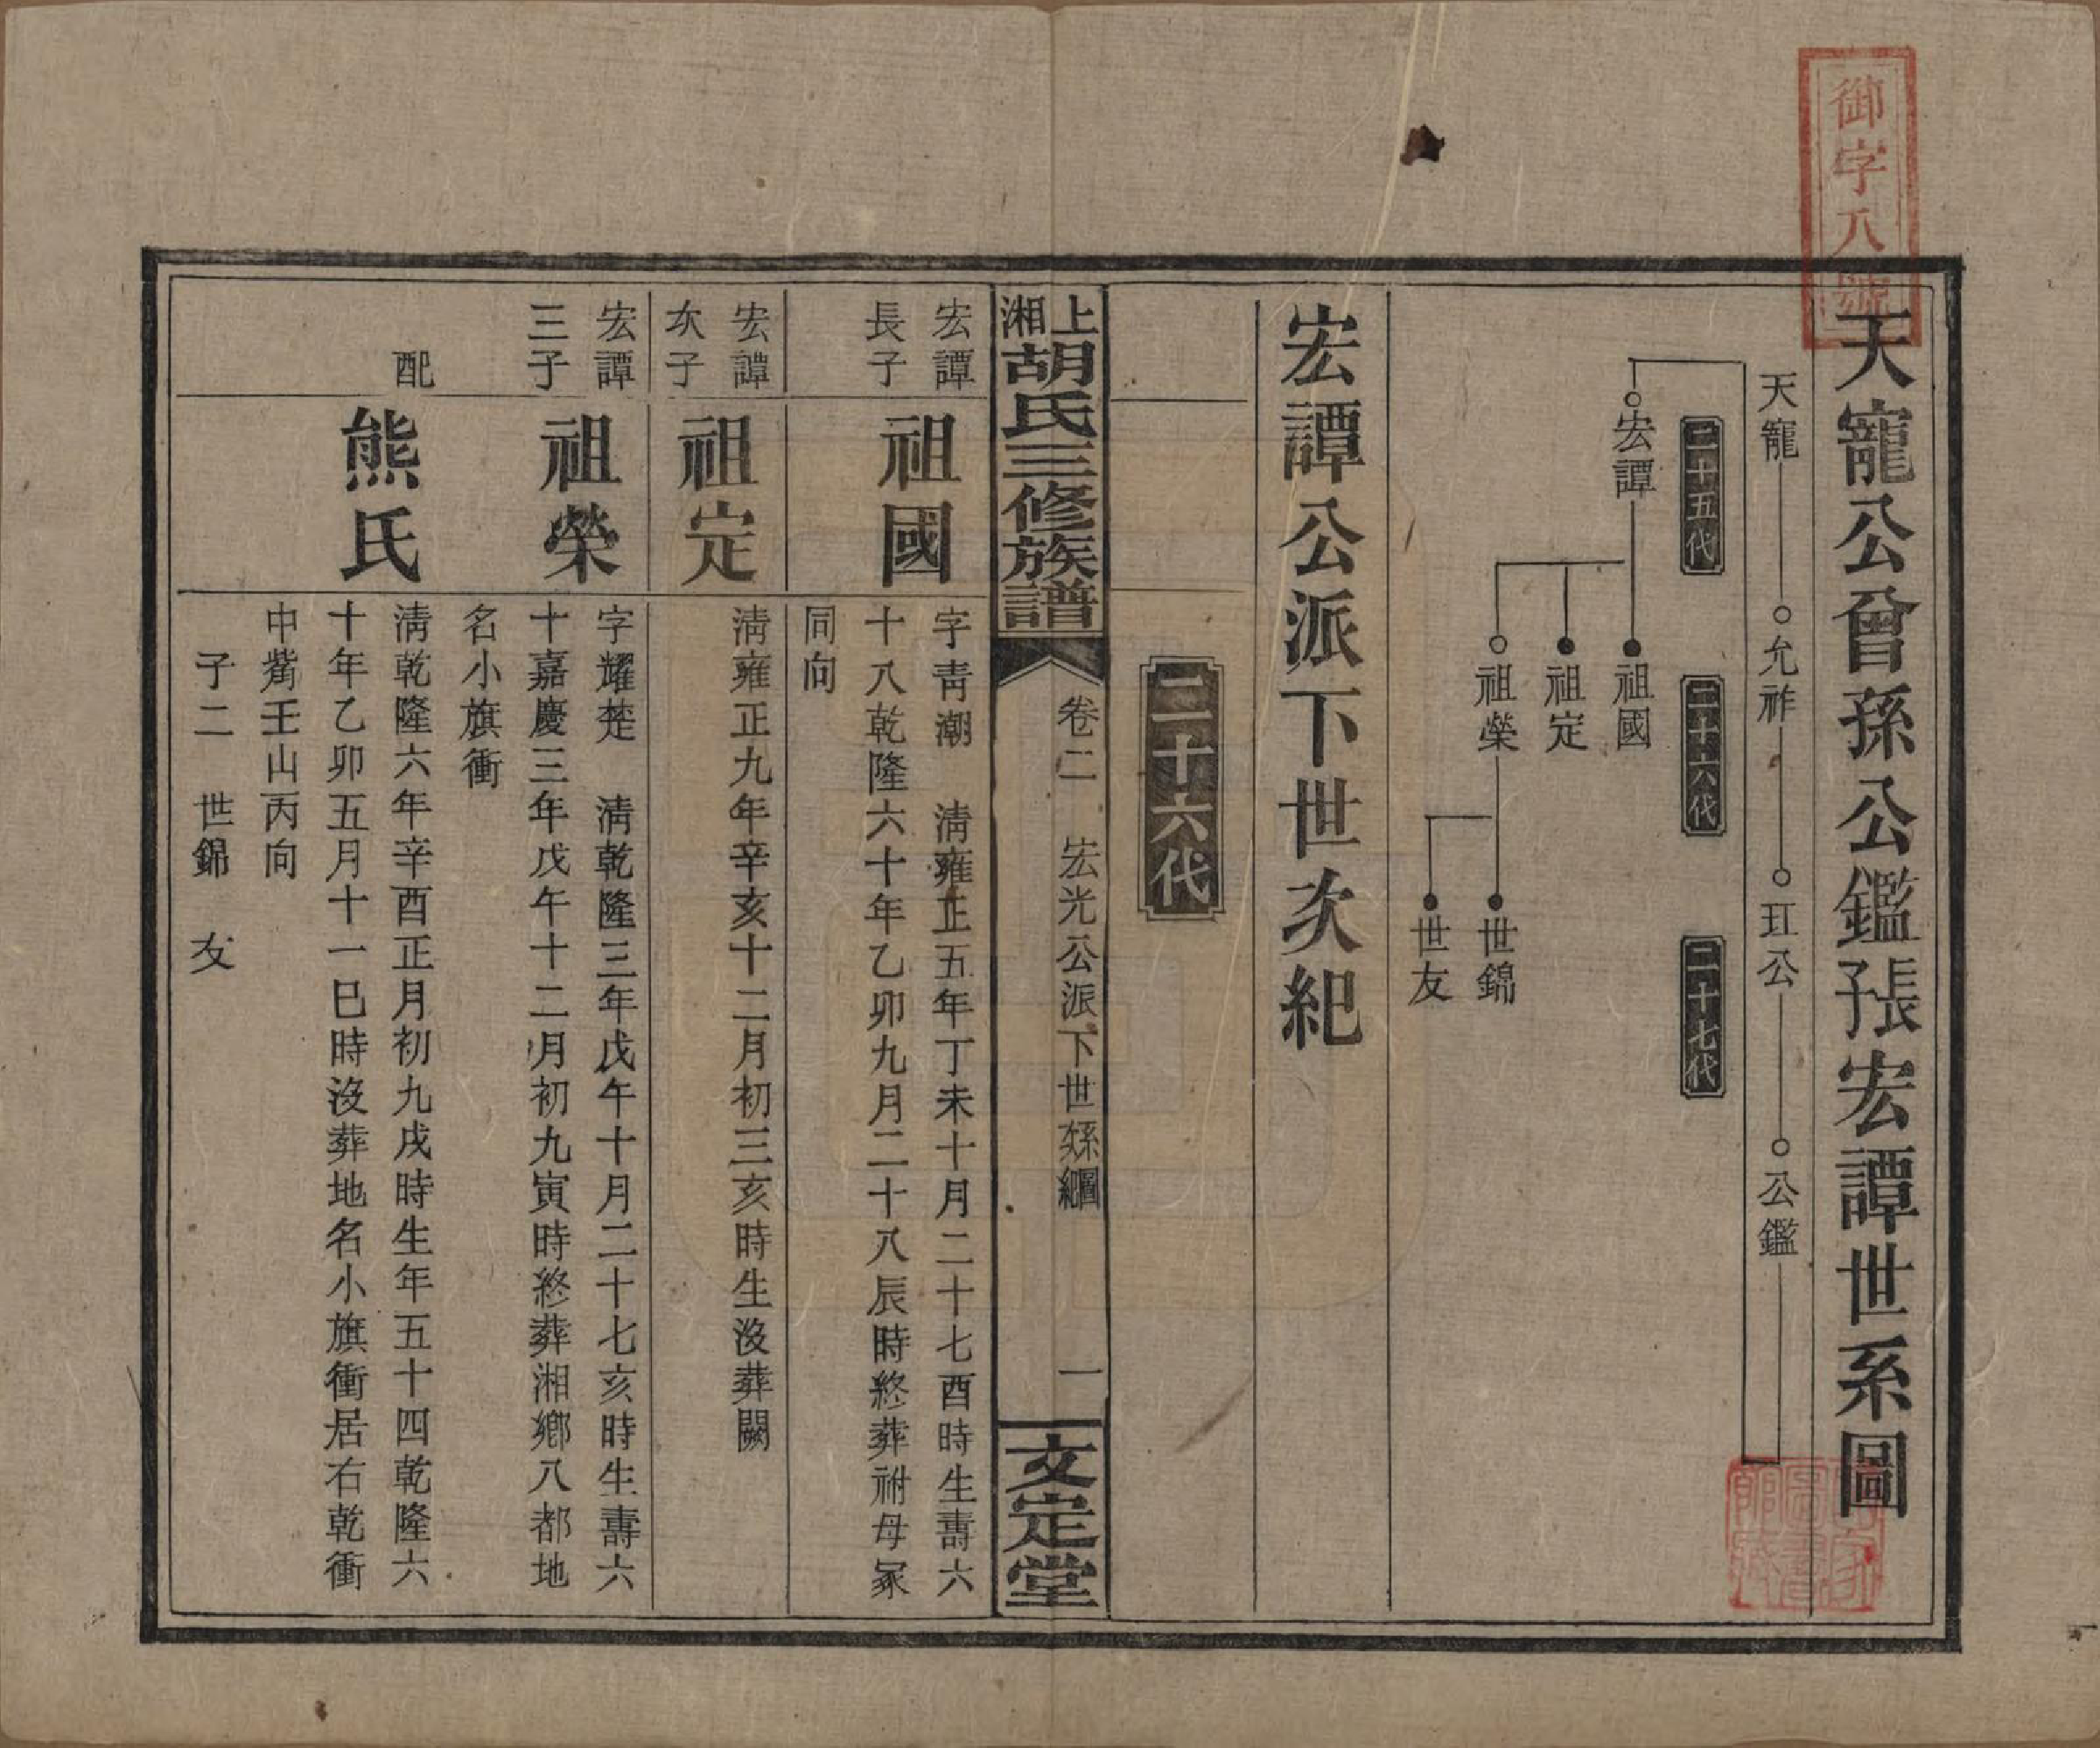 御字八號
天寵公曾孫公鑑張宏譚世系圖
天寵 允祚 玒公 公鑑
二十五代 二十六代 二十七代
宏譚 祖國
祖定
祖榮 世錦
世友
宏譚公派下世次紀
二十六代
上湘胡氏三修族譜 卷二 宏光公派下世系圖 次紀 一 文定堂
宏譚長子 祖國
字青潮 清雍正五年丁未十月二十七酉時生壽六
十八乾隆六十年乙卯九月二十八辰時終葬祔母冢
同向
宏譚次子 祖定
清雍正九年辛亥十二月初三亥時生沒葬闕
宏譚三子 祖榮
字耀楚 清乾隆三年戊午十月二十七亥時生壽六
十嘉慶三年戊午十二月初九寅時終葬湘鄉八都地
名小旗衝
配 熊氏
清乾隆六年辛酉正月初九戌時生年五十四乾隆六
十年乙卯五月十一巳時沒葬地名小旗衝居右乾衝
中觜壬山丙向
子二 世錦 友